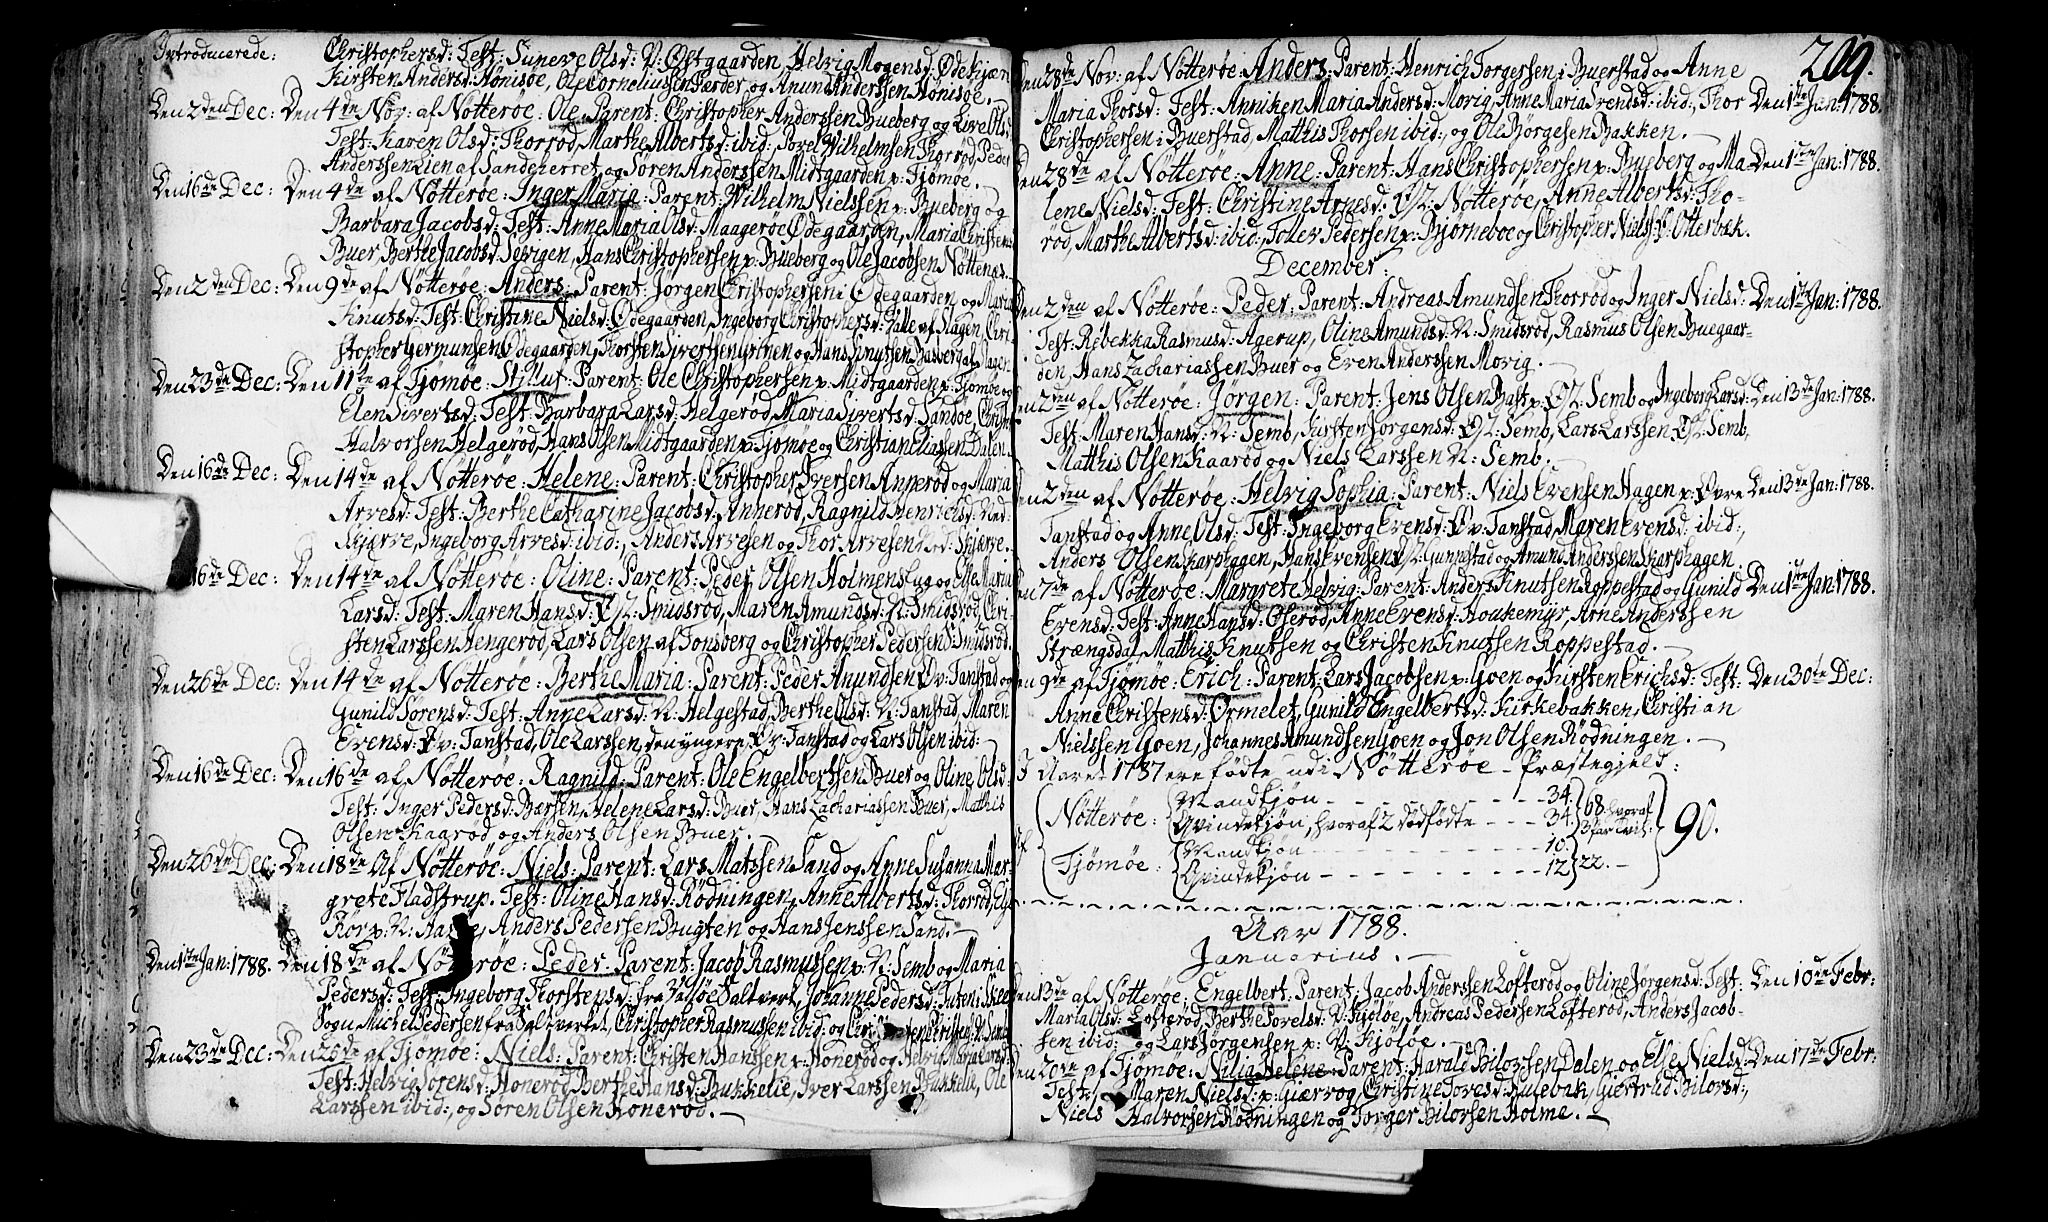 Introducerede:
Christophersd: Test: Suneve Olsd: N: Østgaarden, Helvig Mogensd: Ødekjær
Kirsten Andersd: Hönisöe, Ole Corneliussen Færder, og Anund Anderssen Hönisöe.
Den 2den Dec: Den 4de Nov: af Nötteröe: Ole: Parent: Christopher Anderssen Bueberg og Live Olsd:
Test: Karen Olsd: Thorröd, Marthe Albertsd: ibid: Povel Wilhelmsen Thorröd, Peder
Anderssen Lien af Sandeherret, og Sören Anderssen Midtgaarden p: Tjömöe.
Den 16de Dec: Den 4de af Nötteröe: Inger Maria: Parent: Wilhelm Nielssen p: Bueberg og
Barbara Jacobsd: Test: Anne Maria Olsd: Maageröe Ödegaarden, Maria Christens:
Buer, Berthe Jacobsd: Sevigen, Hans Christophersen p: Bueberg og Ole Jacobsen Nöttenæs.
Den 2den Dec: Den 9de af Nötteröe: Anders: Parent: Jörgen Christophersen i Ödegaarden og Maria
Knutsd: Test: Christine Nielsd: Ödegaarden, Ingeborg Christophersd: af Slagen, Chri-
stopher Germunsen Ödegaarden, Thorsten Sivertsen Grinen og Hans Knutsen Basberg af Slagen.
Den 23de Dec: Den 11te af Tjömöe: Stilluf: Parent: Ole Christophersen p: Midtgaarden p: Tjömöe og
Elen Sivertsd: Test: Barbara Larsd: Helgeröd, Maria Sivertsd: Sandöe,
Halvorsen Helgeröd, Hans Olsen Midtgaarden p: Tjömöe og Christian Eliassen Dalen.
Den 16de Dec: Den 14de af Nötteröe: Helene: Parent: Christopher Iversen Anneröd og Maria
Arvesd: Test: Berthe Catharine Jacobsd: Anneröd, Ragnild Henrichsd: Ned:
Skjærve, Ingeborg Arvesd: ibid:, Anders Arvesen og Thor Arvesen Ned: Skjærve.
16de Dec: Den 14de af Nötteröe: Oline: Parent: Peder Olsen Holmen og Else Maria
Larsd: Test: Maren Hansd: Ø: Smidsröd, Maren Amundsd: N: Smidsröd, Chri-
sten Larssen Hengeröd, Lars Olsen af Tonsberg og Christopher Pedersen Smidsröd.
Den 26de Dec: Den 14de af Nötteröe: Berthe Maria: Parent: Peder Anundsen Öv: Tanstad og
Gunild Sörensd: Test: Anne Larsd: N: Helgestad, Berthe Olsd: N: Tanstad, Maren
Evensd: Öv: Tanstad, Ole Larssen, den yngere, Öv: Tanstad og Lars Olsen ibid:
Den 16de Dec: Den 16de af Nötteröe: Ragnild: Parent: Ole Engelbertsen Buer og Oline Olsd:
Test: Inger Pedersd: Bærsen, Helene Larsd: Buer, Hans Zachariassen Buer, Mathis
Olsen Kaaröd og Anders Olsen Buer.
Den 26de Dec: Den 18de af Nötteröe: Niels: Parent: Lars Matssen Sand og Anne Susanna Mar-
grete Fladstrup. Test: Oline Hansd: Rödningen, Anne Albertsd: Thorröd,
p: N: Anders Pedersen Bugten og Hans Jenssen Sand.
Den 1te Jan: 1788. Den 18de af Nötteröe: Peder: Parent: Jacob Rasmussen p: N: Semb og Maria
Pedersd: Test: Ingeborg Thorstensd: fra Valöe Saltvert, Johanne Pedersd: i Skee
Sogn, Michel Pedersen fra Saltvertet, Christopher Rasmussen ibid: og N: Semb
Den 23de Dec: Den 26de af Tjömöe: Niels: Parent: Christen Hanssen p: Honeröd og Helvig Maria Larsd:
Test: Helvig Sörensd: Honeröd, Berthe Hansd: Bukkelie, Iver Larssen Bukkelie, Ole
Larssen ibid:, og Sören Olsen Honeröd.
209.
Den 28de Nov: af Nötteröe: Anders: Parent: Henrich Torgersen i Buerstad og Anne
Maria Thorsd: Test: Anniken Maria Andersd: Movig, Anne Maria Svendsd: ibid:, Thor Den 1te Jan: 1788.
Christophersen i Buerstad, Matthis Thorsen ibid: og Ole Börgesen Bakken.
Den 28de af Nötteröe: Anne: Parent: Hans Christophersen p: Bueberg og Ma- Den 1te Jan: 1788.
lene Nielsd: Test: Christine Arnesd: Ö: Nötteröe, Anne Albertsd: Tho-
röd, Marthe Albertsd: ibid:, Tollev Pedersen p: Björneboe og Christopher Niels: Otterbek.
December:
Den 2den af Nötteröe: Peder: Parent: Andreas Amundsen Thorröd og Inger Nielsd: Den 1te Jan: 1788.
Test: Rebekka Rasmusd: Agerup, Oline Amundsd: N: Smidsröd, Rasmus Olsen Buegaar-
den, Hans Zachariassen Buer og Even Anderssen Movig.
Den 2den af Nötteröe: Jörgen: Parent: Jens Olsen Bast p: Ö: Semb og Ingeborg Larsd: Den 13de Jan: 1788.
Test: Maren Hansd: N: Semb, Kirsten Jörgensd: Ö: Semb, Lars Larssen Ö: Semb,
Matthis Olsen Kaaröd og Niels Larssen N: Semb.
Den 2den af Nötteröe: Helvig Sophia: Parent: Niels Evensen Hagen p: Övre Den 13de Jan: 1788.
Tanstad og Anne Olsd: Test: Ingeborg Evensd: Öv: Tanstad, Maren Evensd: ibid:,
Anders Olsen Skarphagen, Hans Evensen Gunnestad og Amund Anderssen Skarphagen.
Den 7de af Nötteröe: Margrete Helvig: Parent: Anders Knutsen Roppestad og Gunild Den 1te Jan: 1788.
Evensd: Test: Anne Hansd: Oseröd, Anne Evensd: Houkemyr, Arne Anderssen
Strængsdal, Matthis Knutsen og Christen Knutssen Roppestad.
Den 9de af Tjömöe: Erich: Parent: Lars Jacobsen p: Goen og Kirsten Erichsd: Test: Den 30te Dec:
Anne Christensd: Ormelet, Gunild Engelbertsd: Kirkebakken, Christian
Nielssen Goen, Johannes Amundsen Goen og Jon Olsen Rödningen.
I Aaret 1787 ere födte udi Nötteröe-Præstegjeld:
Af Nötteröe: Mandkjön - - - 34. 68. hvoraf 3 par Tvil: 90.
Qvindekjön, hvoraf 2 dödfödte - - - 34.
Tjömöe: Mandkjön - - - 10. 22.
Qvindekjön - - - 12.
Aar 1788.
Januarius.
Den 13de af Nötteröe: Engelbert: Parent: Jacob Anderssen Lofteröd og Oline Jörgensd: Test: Den 10de Febr:
Maria Olsd: Lofteröd, Berthe Povelsd: N: Kjölöe, Andreas Pedersen Lofteröd, Anders Jacob-
sen ibid: og Lars Jörgensen p: N: Kjölöe.
Den 20de af Tjömöe: Nilia Helene: Parent: Harald Bilovsen Dalen og Else Nielsd: Den 17de Febr:
Test: Maren Nielsd: p: Giærrog, Christine Toresd: Hulebak, Giertrud Bilovsd:,
Niels Halvorsen Rödningen og Torger Bilovsen Holme.